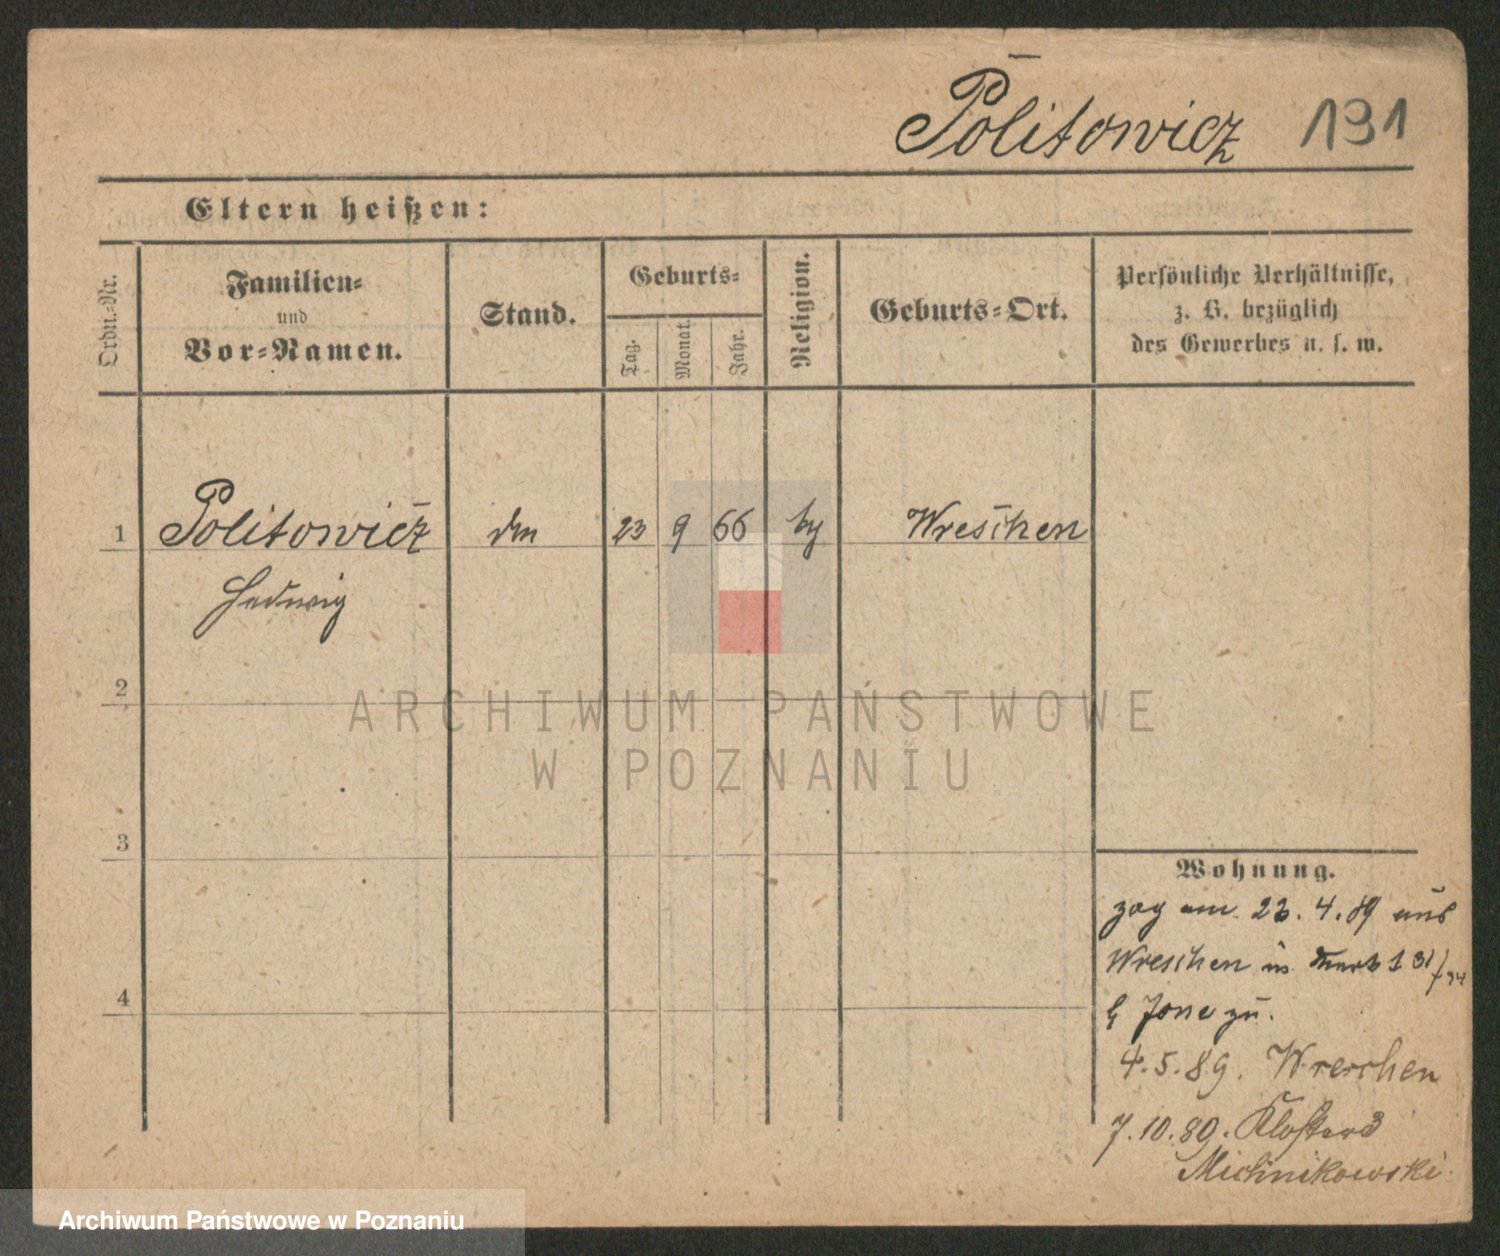 Politowicz 191
Eltern heißen:
Ordn.-Nr.
Familien-
und
Vor-Namen.
Stand.
Geburts-
Tag.
Monat.
Jahr.
Religion.
Geburts-Ort.
Persönliche Verhältnisse,
z. B. bezüglich
des Gewerbes u. s. w.
1 Politowicz 23 9 66 Wreschen
Hedwig
2
3
4
Wohnung.
zog am 23. 4. 89 aus
Wreschen in
zu.
4. 5. 89. Wreschen
7. 10. 89.
Michnikowski
ARCHIWUM PAŃSTWOWE
W POZNANIU
Archiwum Państwowe w Poznaniu